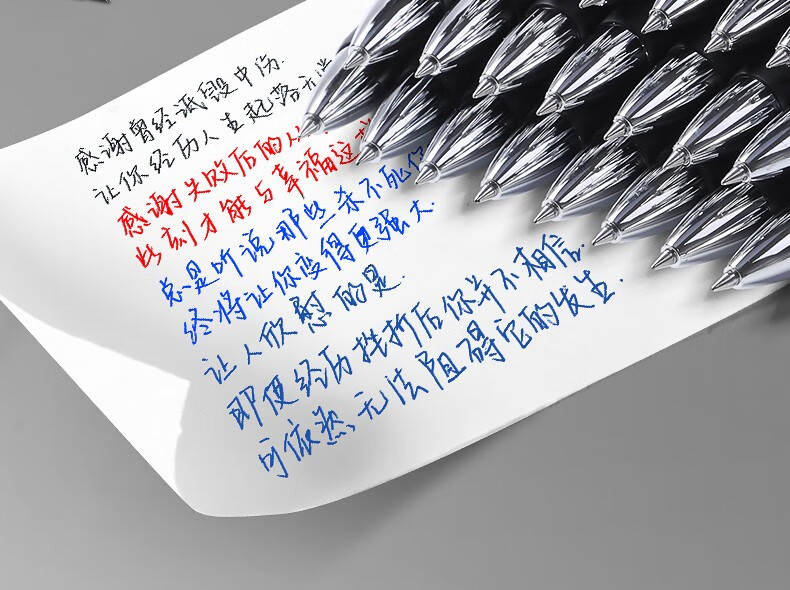 感谢曾经诋毁中伤.
让你经历人生起落无常
感谢失败后的
此刻才能与幸福这
总是听说那些杀不死你
终将让你变得更强大.
让人欣慰的是.
即便经历挫折后你并不相信.
可依然无法阻碍它的发生.